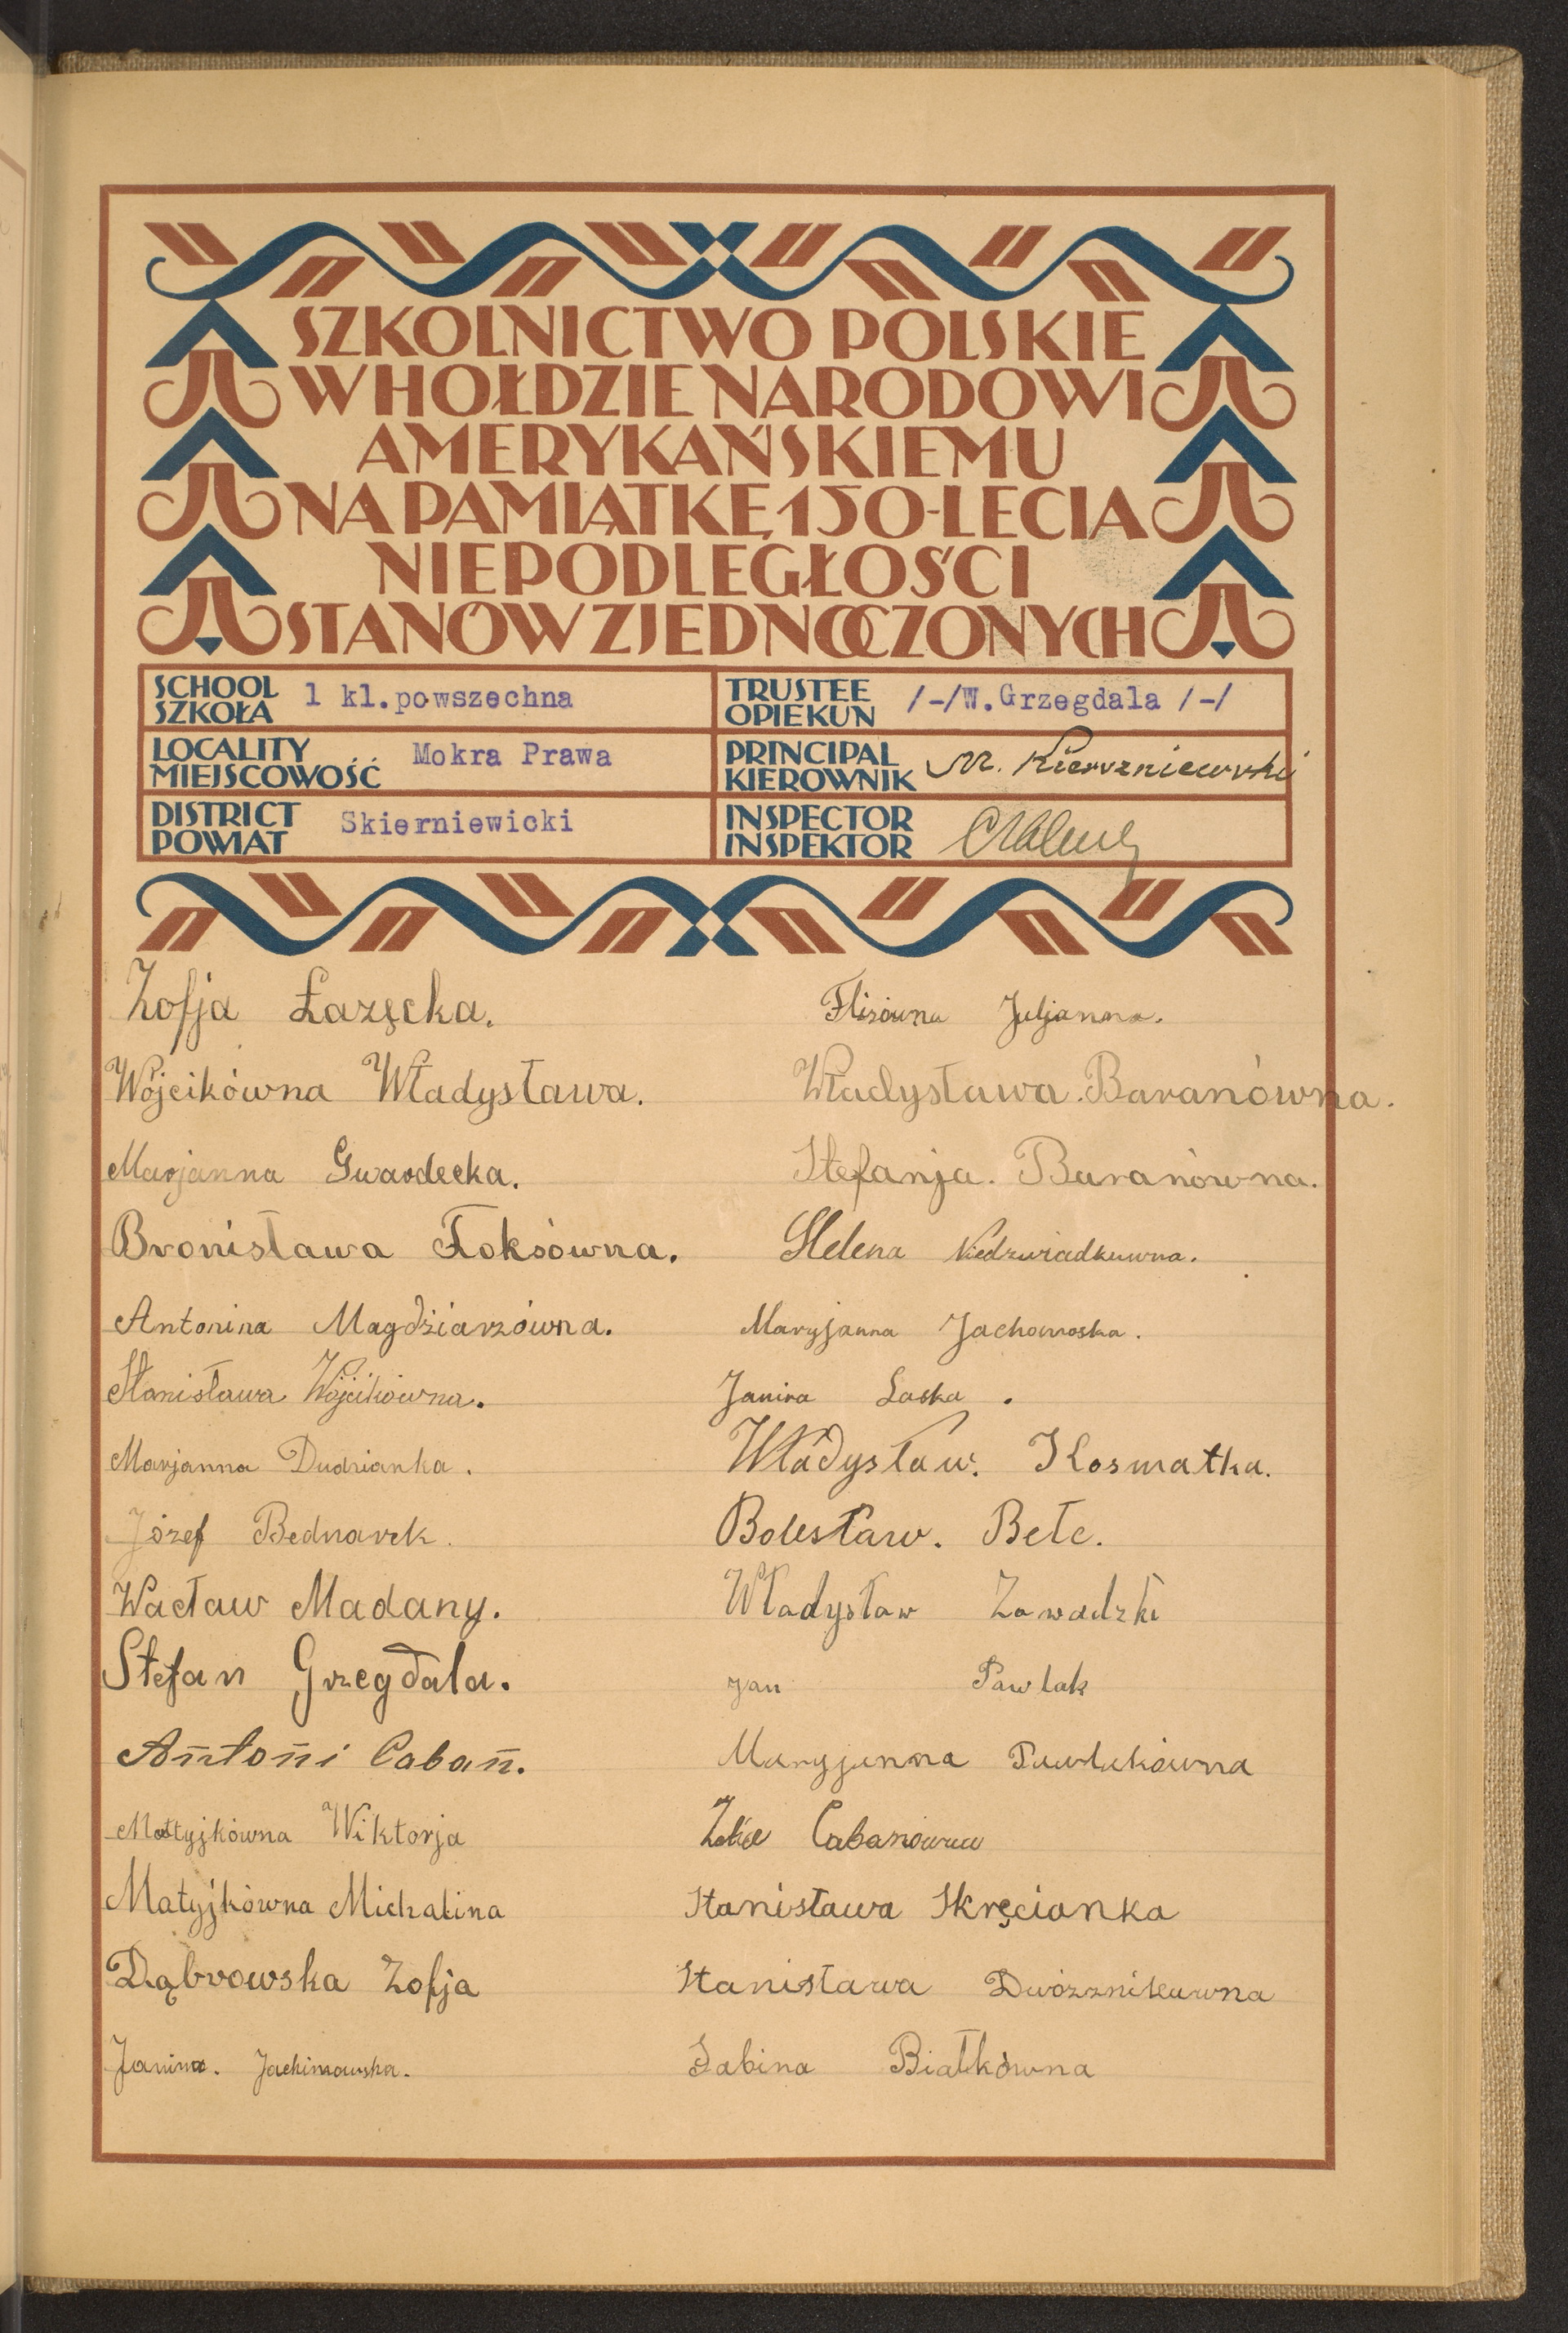 SZKOLNICTWO POLSKIE
W HOŁDZIE NARODOWI
AMERYKAŃSKIEMU
NA PAMIĄTKĘ 150-LECIA
NIEPODLEGŁOŚCI
STANÓW ZJEDNOCZONYCH
SCHOOL
SZKOŁA
1 kl.powszechna
TRUSTEE
OPIEKUN
/-/W.Grzegdala /-/
LOCALITY
MIEJSCOWOŚĆ
Mokra Prawa
PRINCIPAL
KIEROWNIK
M. Kierzniewski
DISTRICT
POWIAT
Skierniewicki
INSPECTOR
INSPEKTOR
Zofja Łazęcka.
Wójcikówna Władysława.
Marjanna Gwardecka.
Bronisława Floksówna.
Antonina Magdziarzówna.
Stanisława Wójcikówna.
Marjanna Dudzianka.
Józef Bednarek.
Wacław Madany.
Stefan Grzegdala.
Antoni Caban.
Matyjkówna Wiktorja
Matyjkówna Michalina
Dąbrowska Zofja
Janina. Jachimowska.
Flisówna Juljanna.
Władysława. Baranówna.
Stefanja. Baranówna.
Helena Niedzwiadkuwna.
Maryjanna Jachomoska.
Janina Laska.
Władysław. Kosmatka.
Bolesław. Bełc.
Władysław Zawadzki
Jan Pawlak
Maryjanna Pawlakówna
Cabanówna
Stanisława Skręcianka
Stanisława Dwózznikuwna
Sabina Białkówna